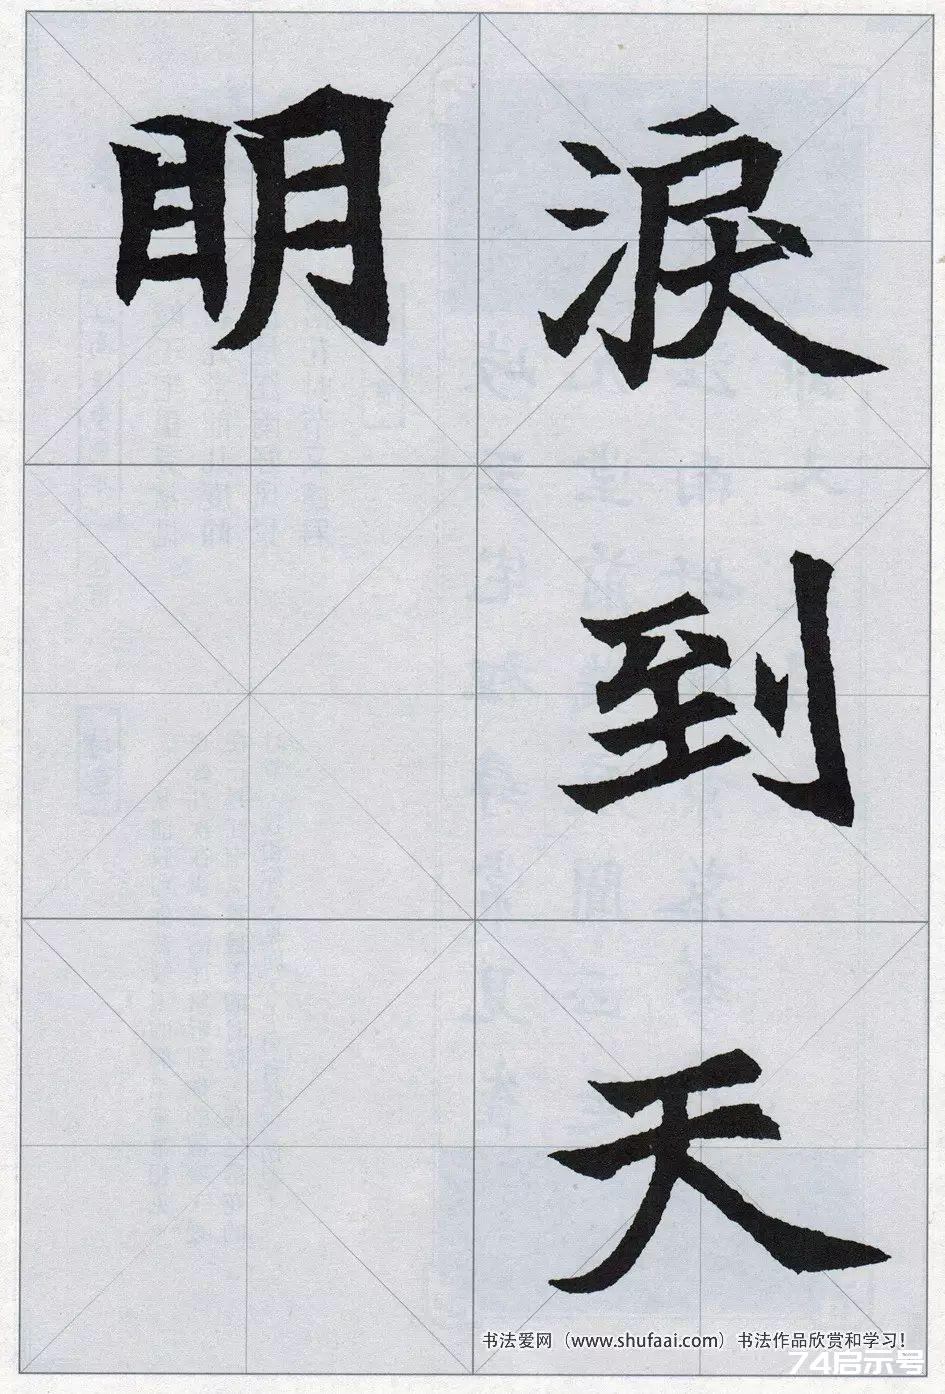 淚到天
明
书法爱网（www.shufaai.com）书法作品欣赏和学习!
74启示号